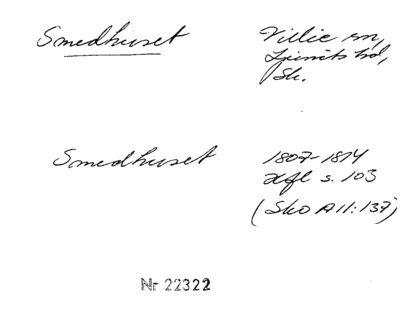 Smedhuset
Villie sn,
Ljunits hd,
Sk.
Smedhuset
1807-1814
Hfl s. 103
(Sko A II:137)
Nr 22322